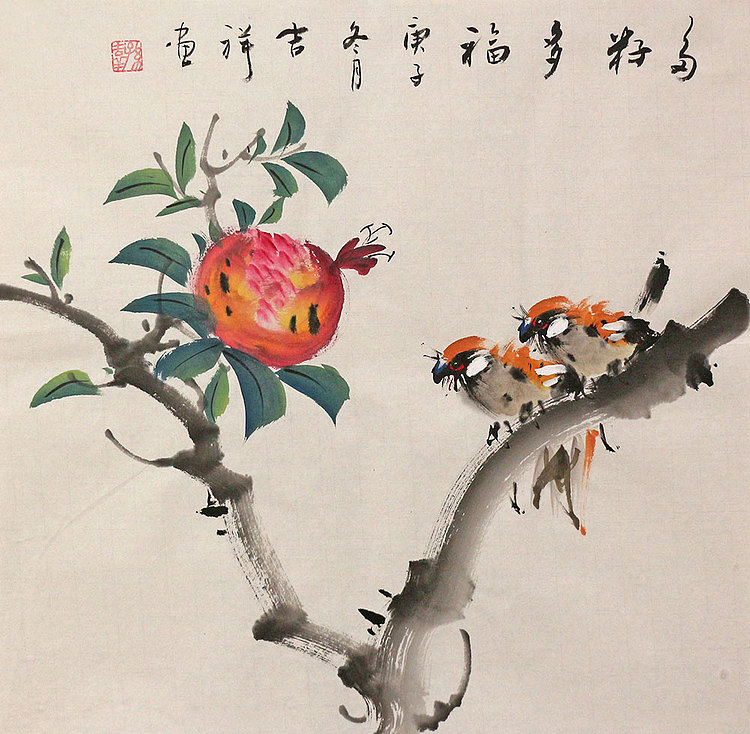 多籽多福庚子冬月吉祥画